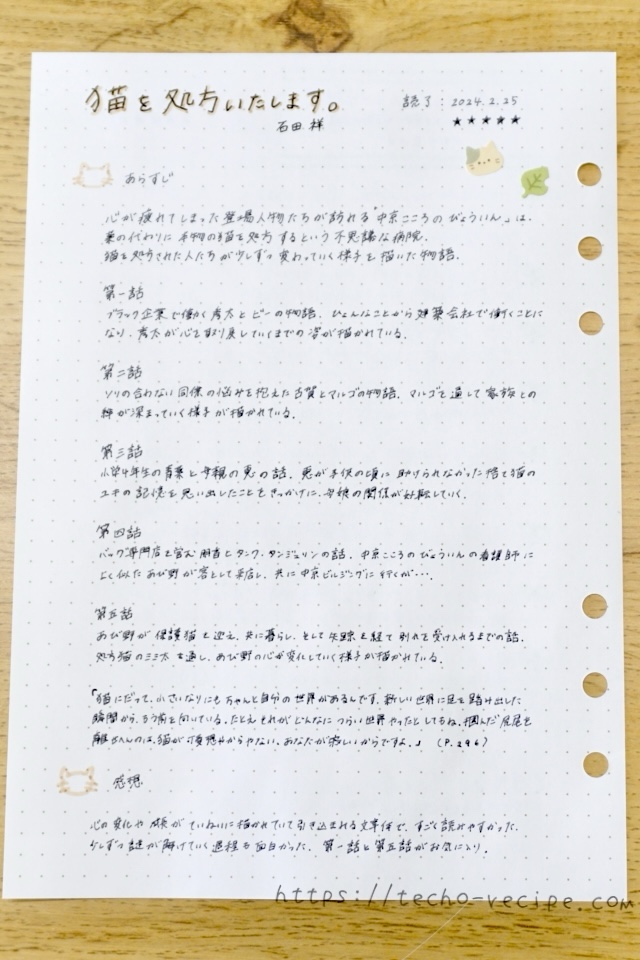 猫を処方いたします。
読了：2024.2.25
石田 祥
★★★★★
あらすじ
心が疲れてしまった登場人物たちが訪れる「中京こころのびょういん」は、
薬の代わりに本物の猫を処方するという不思議な病院。
猫を処方された人たちが少しずつ変わっていく様子を描いた物語。
第一話
ブラック企業で働く秀太とビーの物語。ひょんなことから建築会社で働くことに
なり、秀太が心を取り戻していくまでの姿が描かれている。
第二話
ソリの合わない同僚の悩みを抱えた古賀とマルゴの物語。マルゴを通して家族との
絆が深まっていく様子が描かれている。
第三話
小学4年生の青葉と母親の恵の話。恵が子供の頃に助けられなかった捨て猫の
ユキの記憶を思い出したことをきっかけに、母娘の関係が好転していく。
第四話
バッグ専門店を営む朋音とタンク・タンジェリンの話。中京こころのびょういんの看護師に
よく似たあび野が客として来店し、共に中京ビルヂングに行くが…。
第五話
あび野が保護猫を迎え、共に暮らし、そして失踪を経て別れを受け入れるまでの話。
処方猫のミミ太を通し、あび野の心が変化していく様子が描かれている。
「猫にだって、小さいなりにもちゃんと自分の世界があるんです。新しい世界に足を踏み出した
瞬間から、もう前を向いている。たとえそれがどんなにつらい世界やったとしてもね。掴んだ尻尾を
離さへんのは、猫が可哀想やからやない。あなたが寂しいからですよ。」（P.296）
感想
心の変化や成長がていねいに描かれていて引き込まれる文章体で、すごく読みやすかった。
少しずつ謎が解けていく過程も面白かった。第一話と第五話がお気に入り。
https://techo-recipe.com